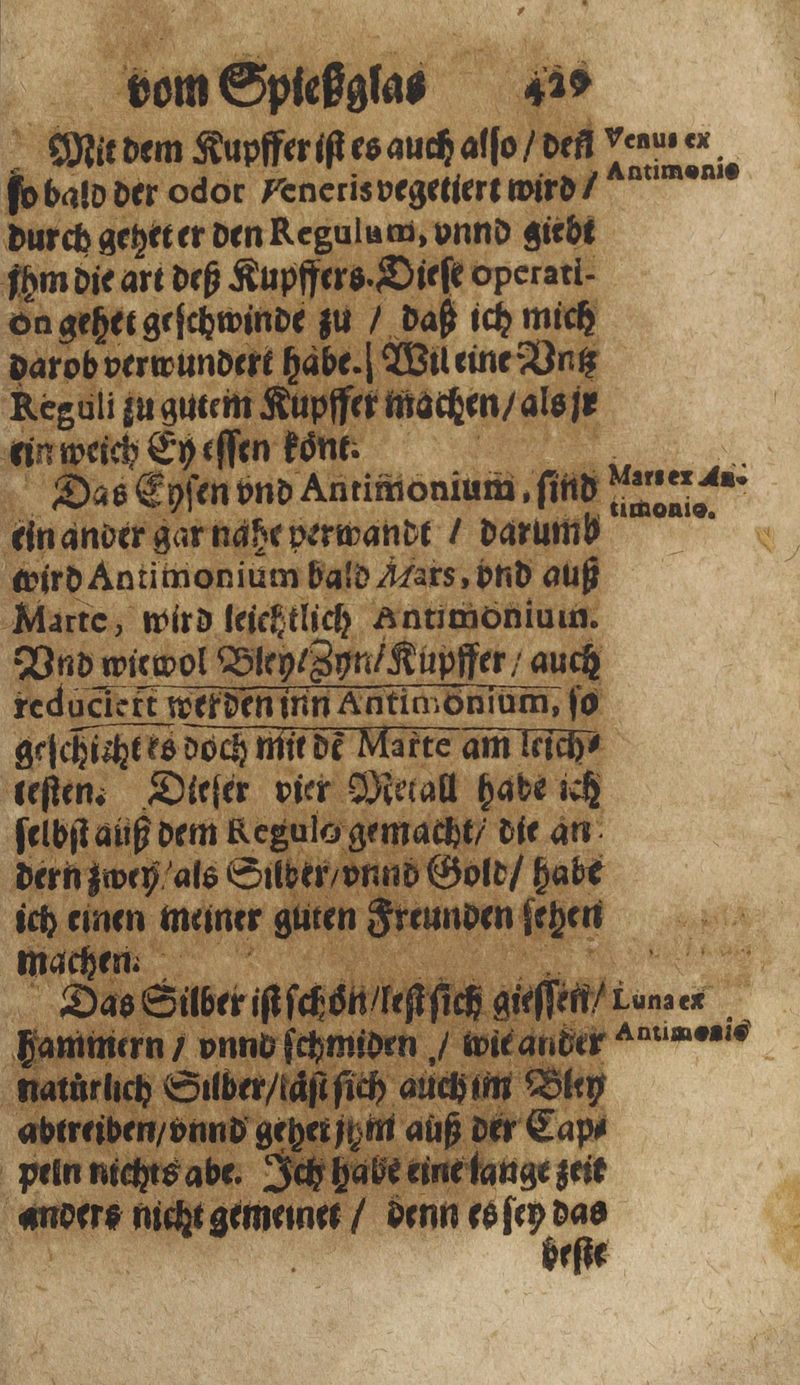 vom Spießglas 429
Mit dem Kupffer ist es auch also / deñ
so bald der odor Veneris vegetiert wird /
durch gehet er den Regulum, vnnd giebt
jhm die art deß Kupffers. Diese operati-
on gehet geschwinde zu / daß ich mich
darob verwundert habe. | Wil eine Vntz
Reguli zu gutem Kupffer machen / als jr
ein weich Ey essen könt.
Venus ex
Antimonio
Das Eysen vnd Antimonium, sind
ein ander gar nahe verwandt / darumb
wird Antimonium bald Mars, vnd auß
Marte, wird leichtlich Antimonium.
Vnd wiewol Bley / Zyn / Kupffer / auch
reduciert werden inn Antimonium, so
geschicht es doch mit dē Marte am leich-
testen. Dieser vier Metall habe ich
selbst auß dem Regulo gemacht / die an-
dern zwey / als Silber / vnnd Gold / habe
ich einen meiner guten Freunden sehen
machen.
Mars ex An-
timonio.
Das Silber ist schön / lest sich giessen /
hammern / vnnd schmiden / wie ander
natürlich Silber / läst sich auch im Bley
abtreiben / vnnd gehet jhm auß der Cap-
peln nichts abe. Ich habe eine lange zeit
anders nicht gemeinet / denn es sey das
Luna ex
Antimonio
beste